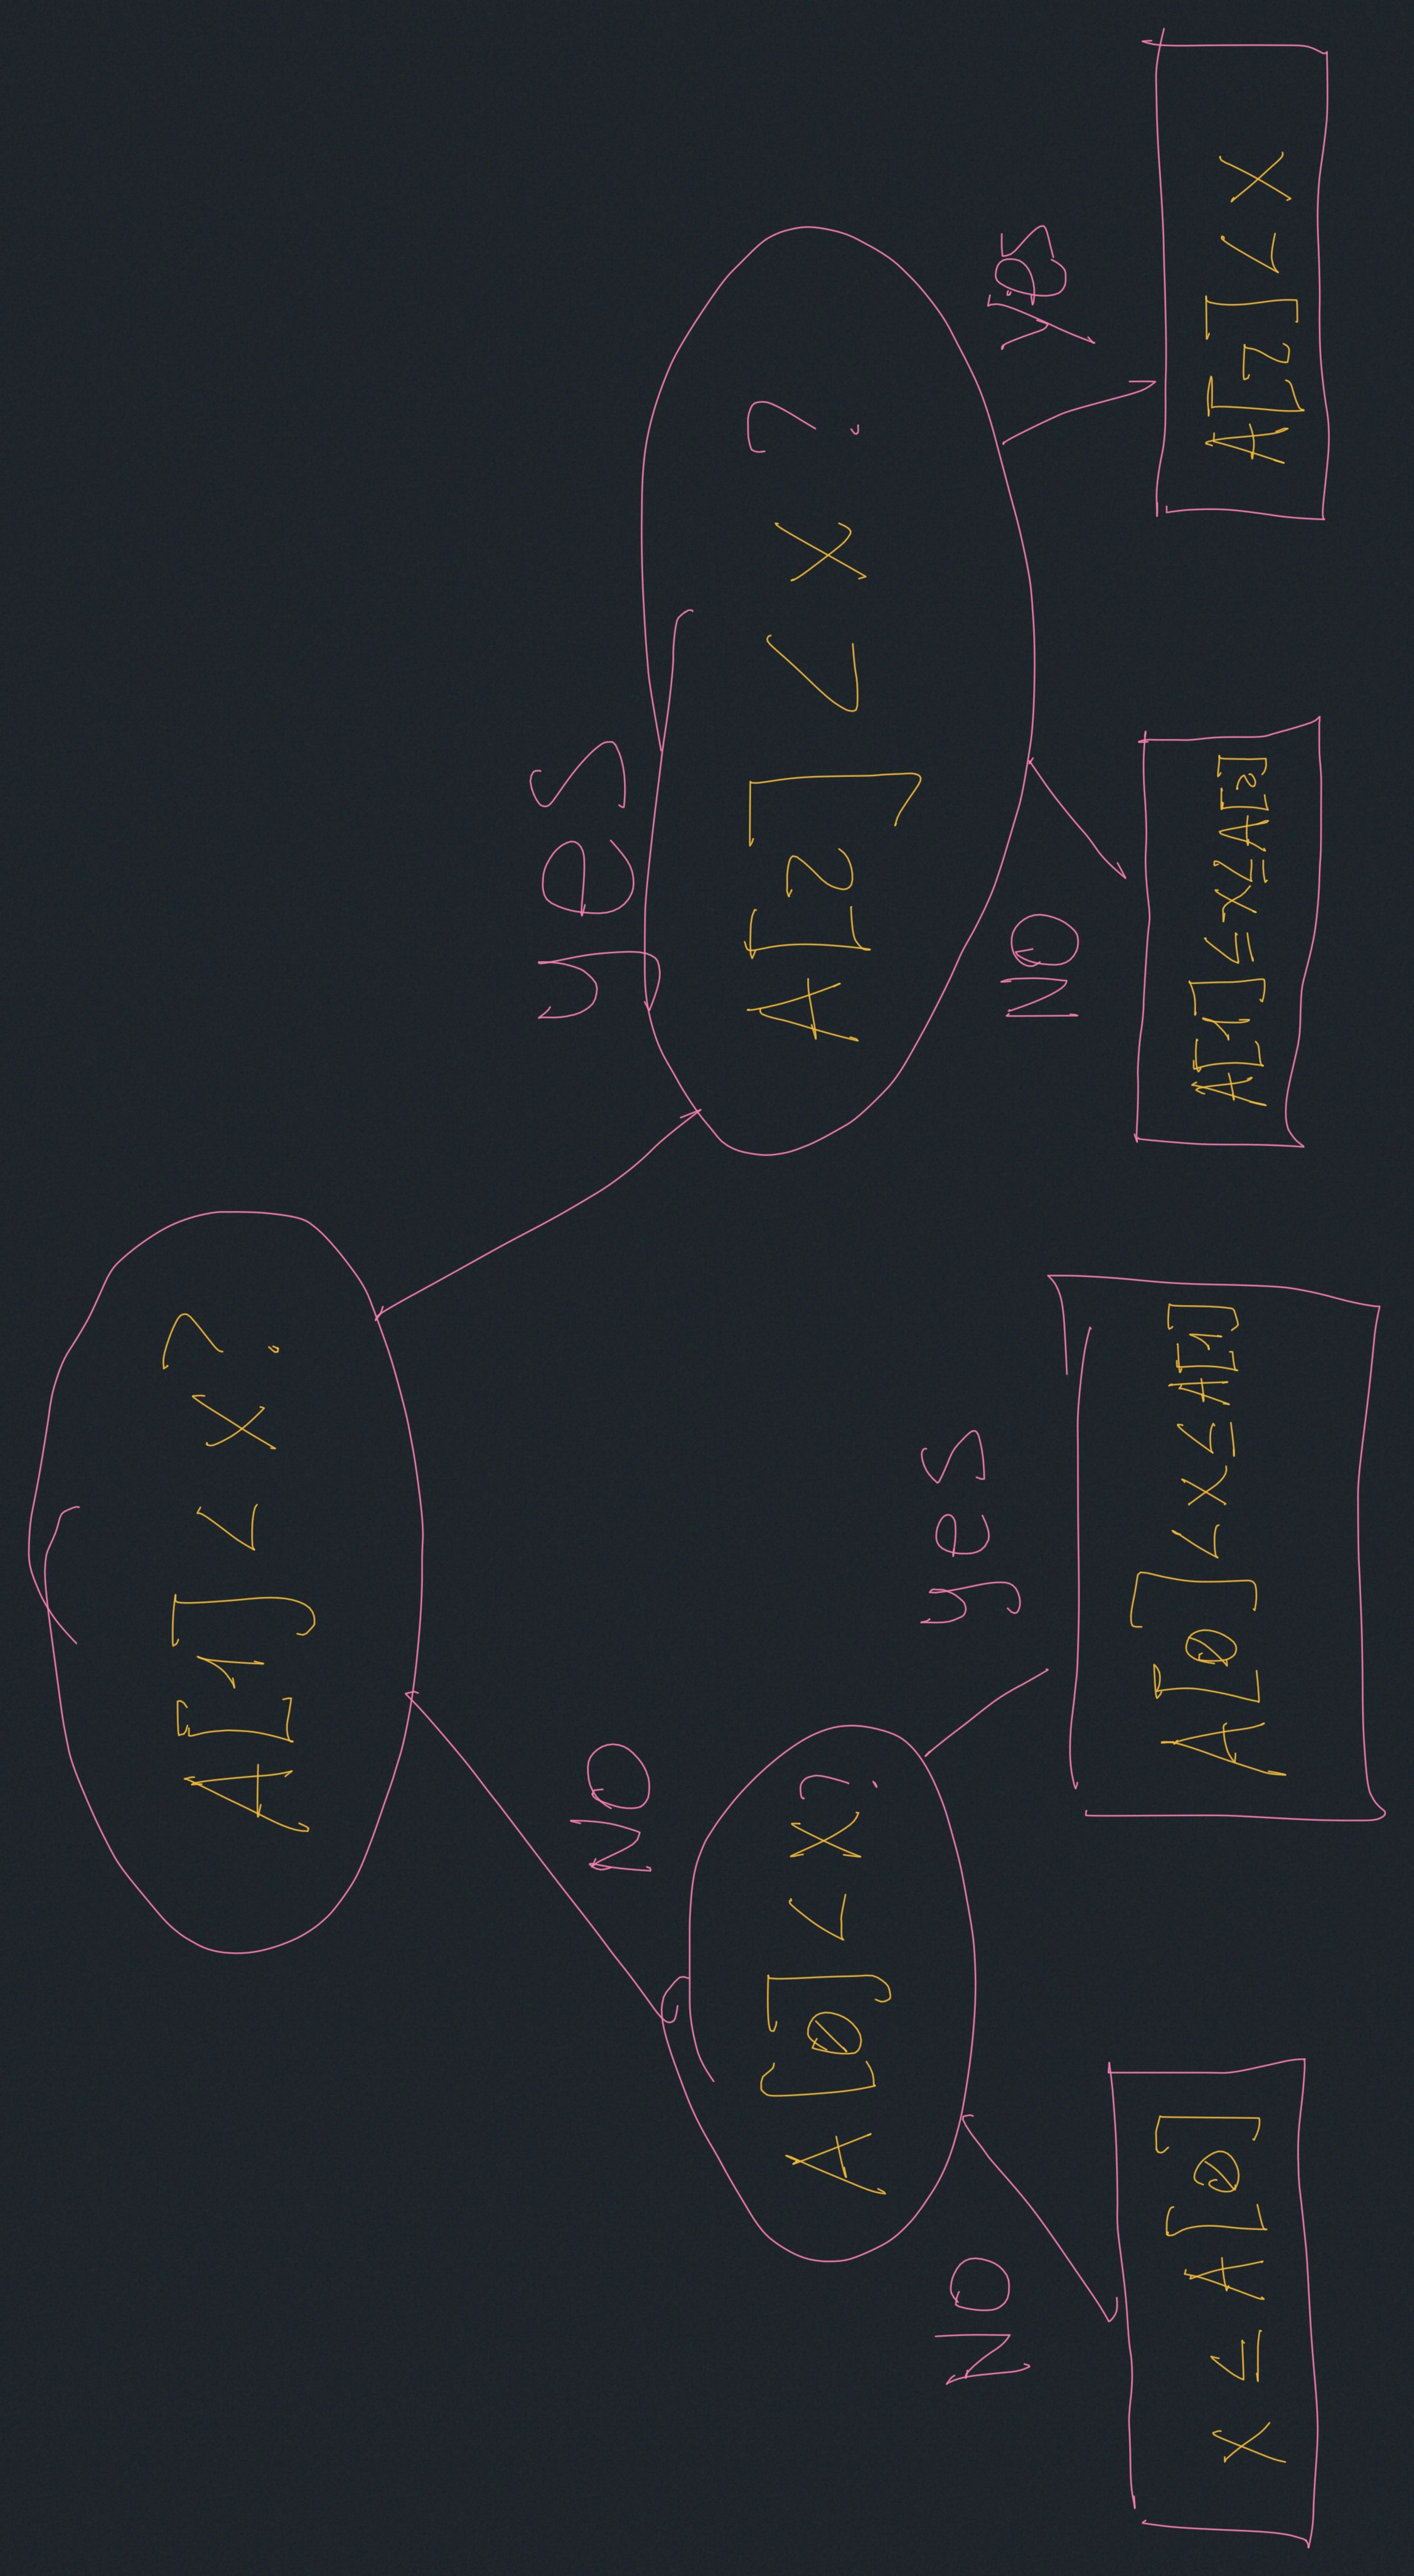 A[1] < X?
NO
yes
A[0] < X?
A[2] < X ?
NO
yes
NO
yes
X ≤ A[0]
A[0] < X ≤ A[1]
A[1] ≤ X ≤ A[2]
A[2] < X